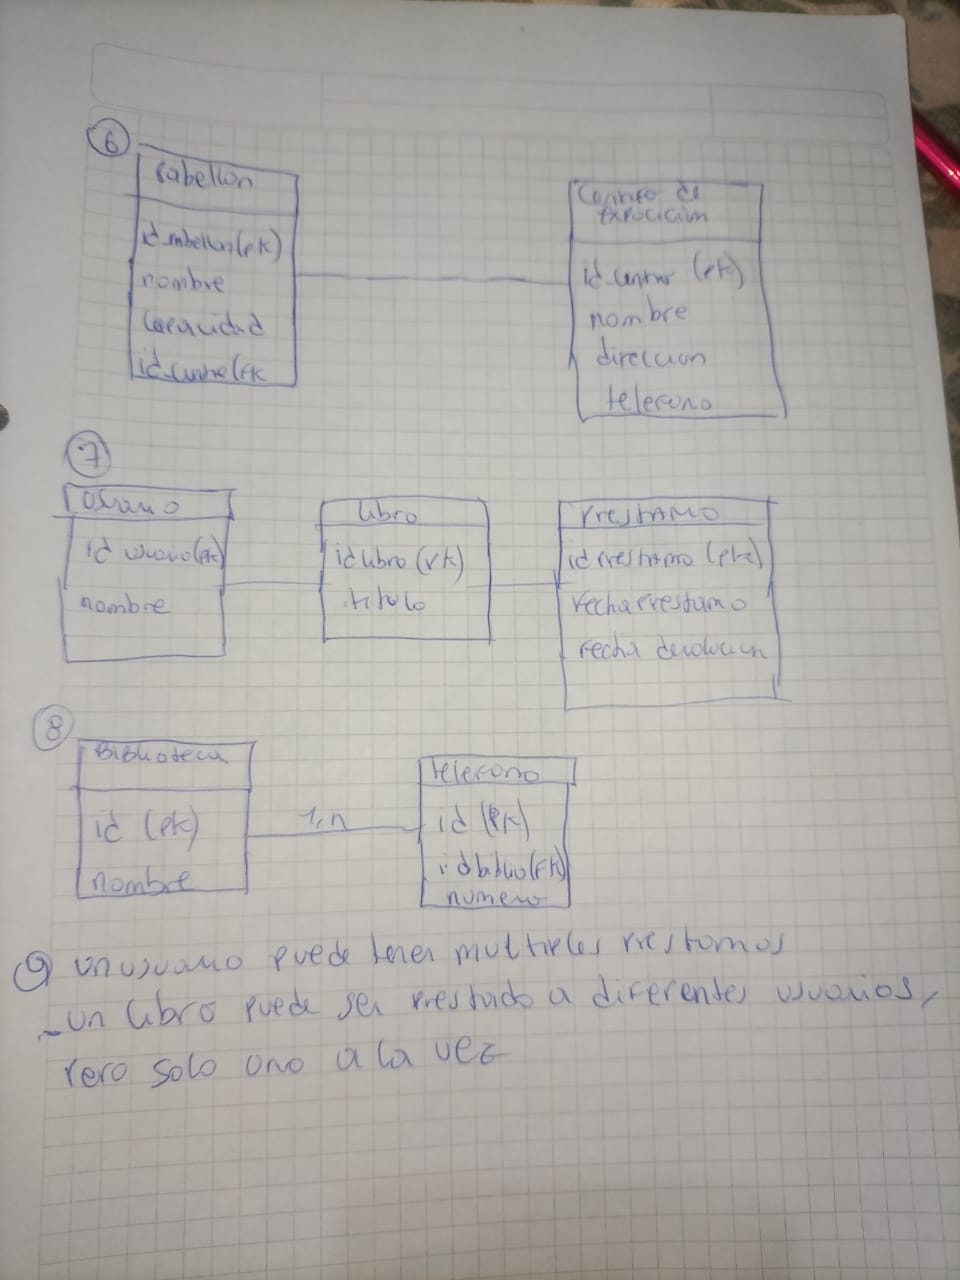 6
Pabellon
id_pabellon(pk)
nombre
Capacidad
id_centro(fk
Centro de
exposicion
id_centro (pk)
nombre
direccion
telefono
7
Usuario
id usuario(pk)
nombre
libro
id libro (pk)
titulo
Prestamo
id prestamo (pk)
fecha prestamo
fecha devolucion
8
Biblioteca
id (pk)
nombre
1,n
telefono
id (Pk)
idbiblio(Fk)
numero
9 un usuario puede tener multiples prestamos
- un libro puede ser prestado a diferentes usuarios,
pero solo uno a la vez